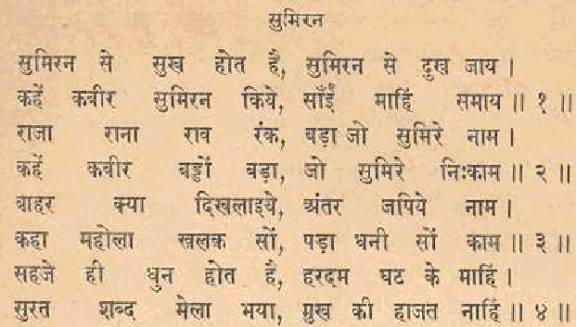 सुमिरन
सुमिरन से सुख होत है, सुमिरन से दुख जाय ।
कहें कबीर सुमिरन किये, साँईं माहिं समाय ॥ १ ॥
राजा राना राव रंक, बड़ा जो सुमिरे नाम ।
कहें कबीर बड्डों बड़ा, जो सुमिरे निःकाम ॥ २ ॥
बाहर क्या दिखलाइये, अंतर जपिये नाम ।
कहा महोला खलक़ सों, पड़ा धनी सों काम ॥ ३ ॥
सहजे ही धुन होत है, हरदम घट के माहिं ।
सुरत शब्द मेला भया, मुख की हाजत नाहिं ॥ ४ ॥